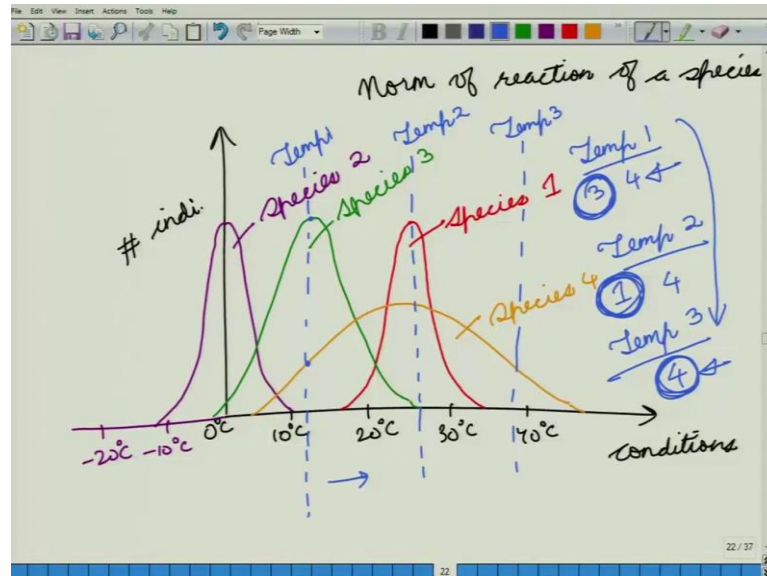 File Edit View Insert Actions Tools Help
Page Width
B I
Norm of reaction of a species
Temp1
Temp2
Temp3
Species 2
Species 3
Species 1
Species 4
# indi.
Temp 1
3 4
Temp 2
1 4
Temp 3
4
-20°C -10°C 0°C 10°C 20°C 30°C 40°C
conditions
22 / 37
22